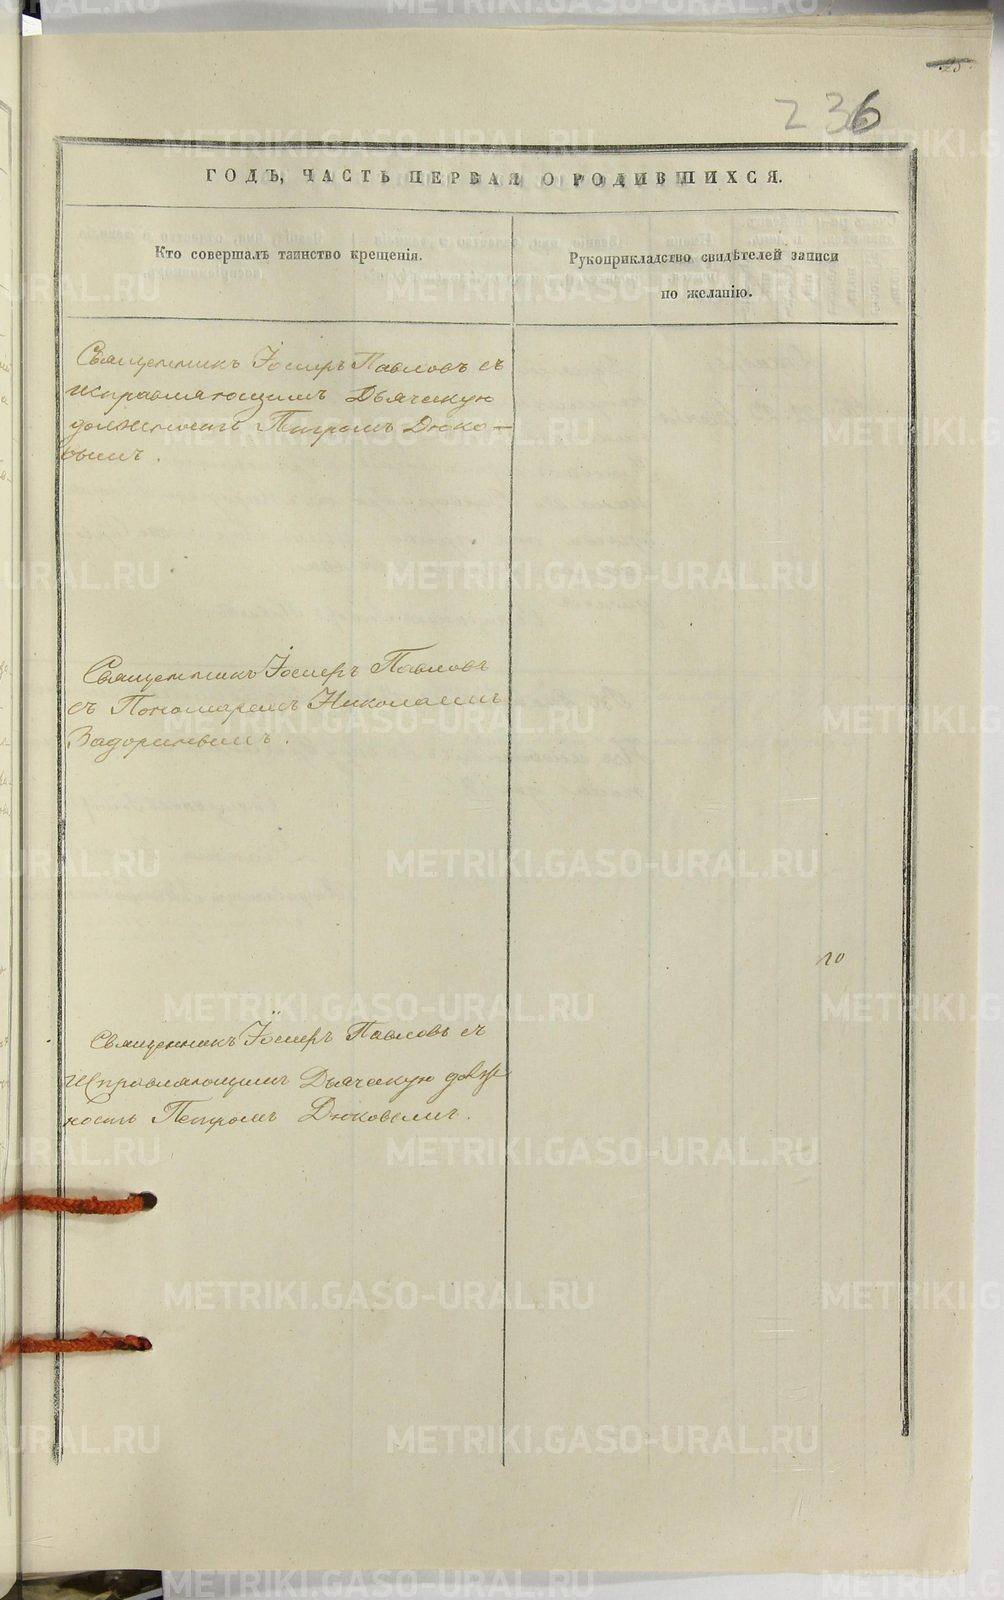 25.
236
ГОДЪ, ЧАСТЬ ПЕРВАЯ О РОДИВШИХСЯ.
Кто совершалъ таинство крещенія.
Рукоприкладство свидѣтелей записи
по желанію.
Священникъ Іосифъ Павловъ съ
исправляющимъ Дьяческую
должность Петромъ Дюко-
вымъ.
Священникъ Іосифъ Павловъ
съ Пономаремъ Николаемъ
Задоринымъ.
10
Священникъ Іосифъ Павловъ съ
исправляющимъ Дьяческую долж
ность Петромъ Дюковымъ.
METRIKI.GASO-URAL.RU